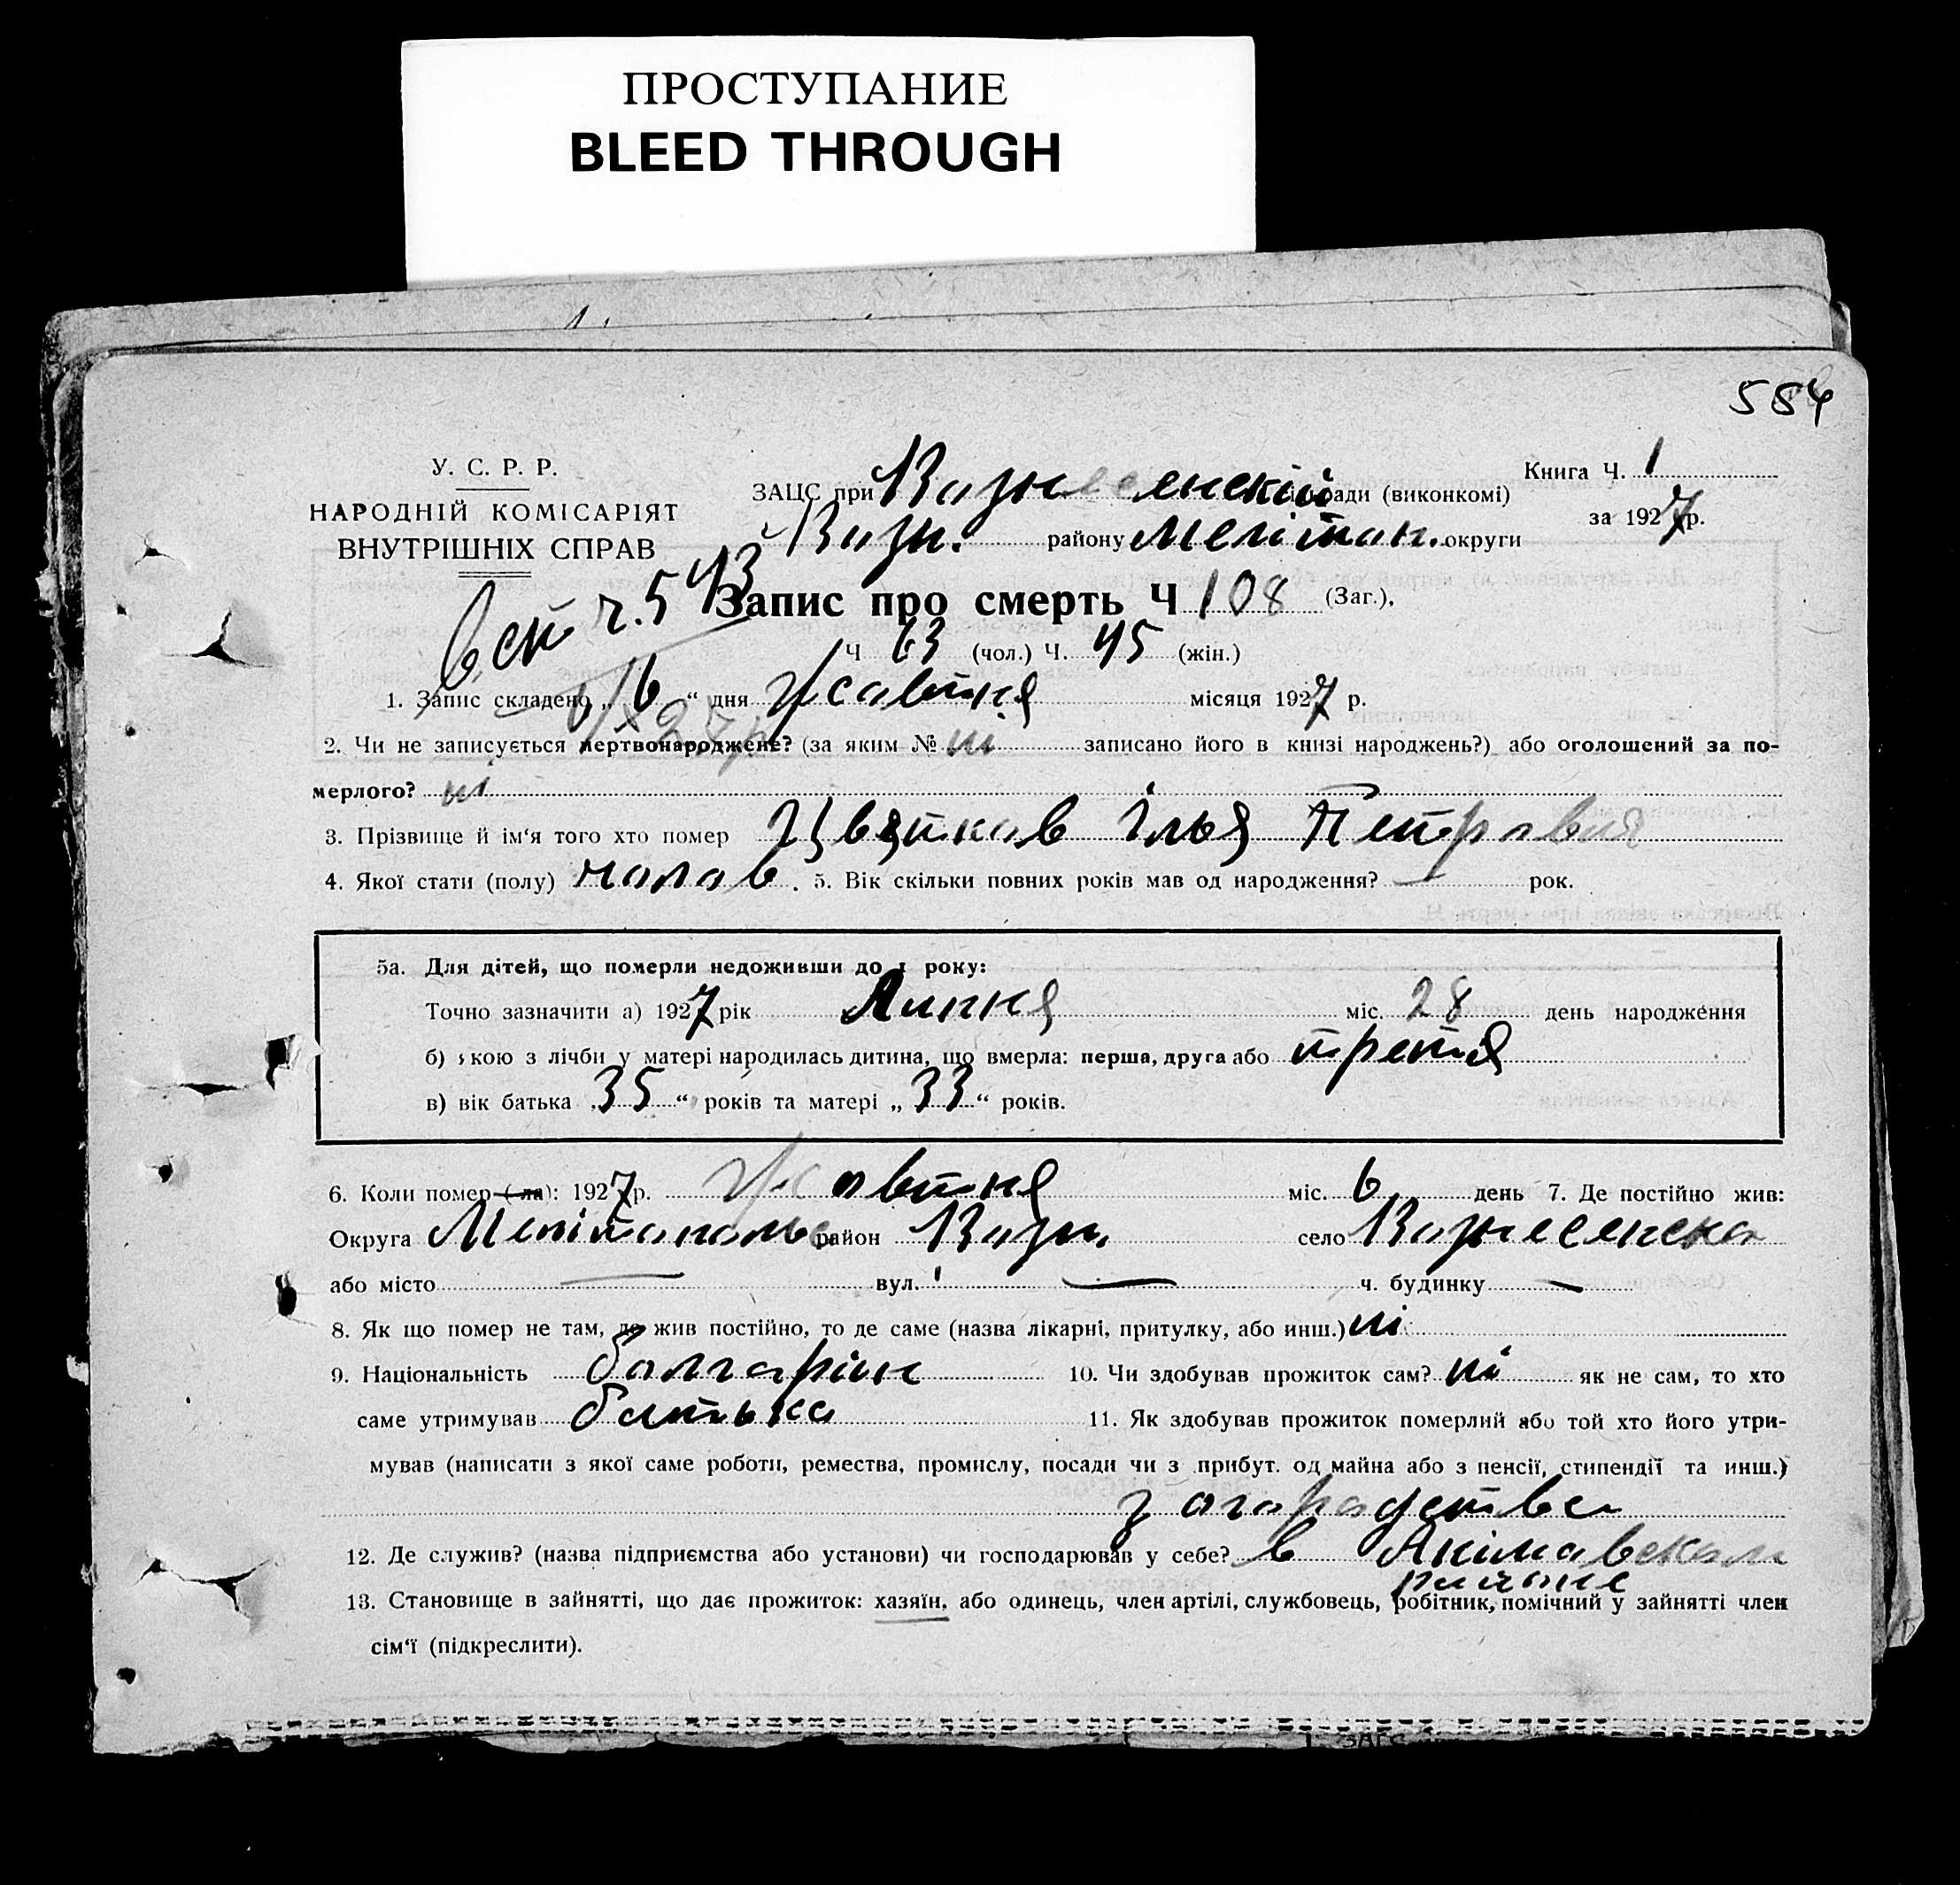 ПРОСТУПАНИЕ
BLEED THROUGH
584
У. С. Р. Р.
НАРОДНІЙ КОМІСАРІЯТ
ВНУТРІШНІХ СПРАВ
ЗАЦС при Вознесенскій раді (виконкомі)
Возн. району Меліtоп. округи
Книга Ч. 1
за 1927 р.
ч. 543
Запис про смерть Ч 108 (Заг.),
Ч 63 (чол.) Ч. 45 (жін.)
1. Запис складено „ 6 “ дня жовтня місяця 1927 р.
2. Чи не записується мертвонароджене? (за яким № ні записано його в книзі народжень?) або оголошений за по-
мерлого? ні
3. Прізвище й ім‘я того хто помер Цвятков Ілья Петрович
4. Якої стати (полу) чолов. 5. Вік скільки повних років мав од народження? — рок.
5а. Для дітей, що померли недоживши до 1 року:
Точно зазначити а) 1927 рік Липня міс. 28 день народження
б) якою з лічби у матері народилась дитина, що вмерла: перша, друга або третя
в) вік батька „ 35 “ років та матері „ 33 “ років.
6. Коли помер (-ла): 1927 р. жовтня міс. 6 день 7. Де постійно жив:
Округа Мелітополь район Возн. село Вознесенска
або місто — вул. — ч. будинку —
8. Як що помер не там, де жив постійно, то де саме (назва лікарні, притулку, або инш.) ні
9. Національність болгарін 10. Чи здобував прожиток сам? ні як не сам, то хто
саме утримував батько 11. Як здобував прожиток померлий або той хто його утри-
мував (написати з якої саме роботи, ремества, промислу, посади чи з прибут. од майна або з пенсії, стипендії та инш.)
з огородства
12. Де служив? (назва підприємства або установи) чи господарював у себе? в Акімовском
районе
13. Становище в зайнятті, що дає прожиток: хазяїн, або одинець, член артілі, службовець, робітник, помічний у зайнятті член
сім‘ї (підкреслити).